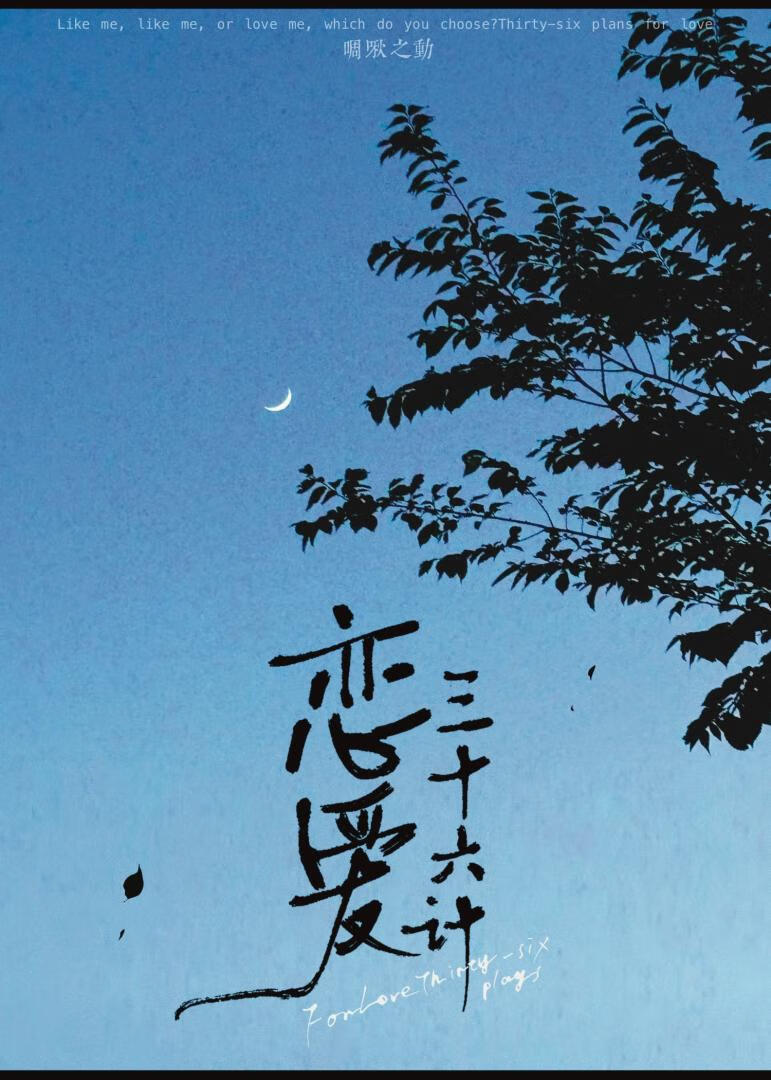 Like me, like me, or love me, which do you choose?Thirty-six plans for love
啁啾之動
恋爱
三十六计
ForLove Thirty-six
plays